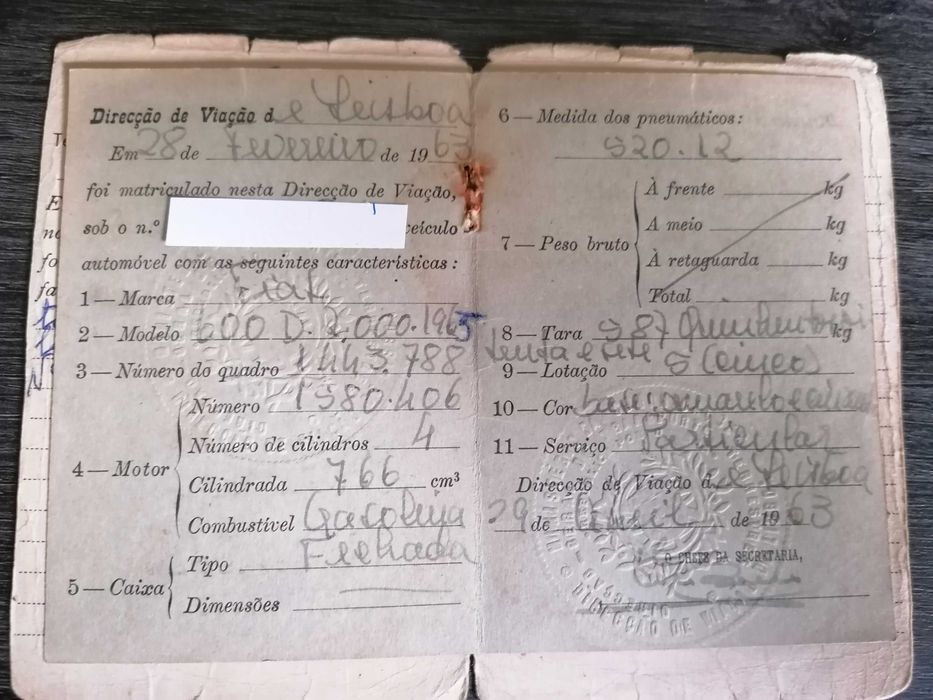 Direcção de Viação de Lisboa
Em 28 de Fevereiro de 1963
foi matriculado nesta Direcção de Viação,
sob o n.º veículo
automóvel com as seguintes características:
1—Marca Fiat
2—Modelo 600 D. 2.000.1963
3—Número do quadro 1443.788
4—Motor
Número 1580.406
Número de cilindros 4
Cilindrada 766 cm³
Combustível Gasolina
5—Caixa
Tipo Fechada
Dimensões
6—Medida dos pneumáticos:
520.12
7—Peso bruto
À frente kg
A meio kg
À retaguarda kg
Total kg
8—Tara 587 Quinhentos kg
e sete
9—Lotação 5 (cinco)
10—Cor
11—Serviço Particular
Direcção de Viação de Lisboa
29 de Abril de 1963
O CHEFE DA SECRETARIA,